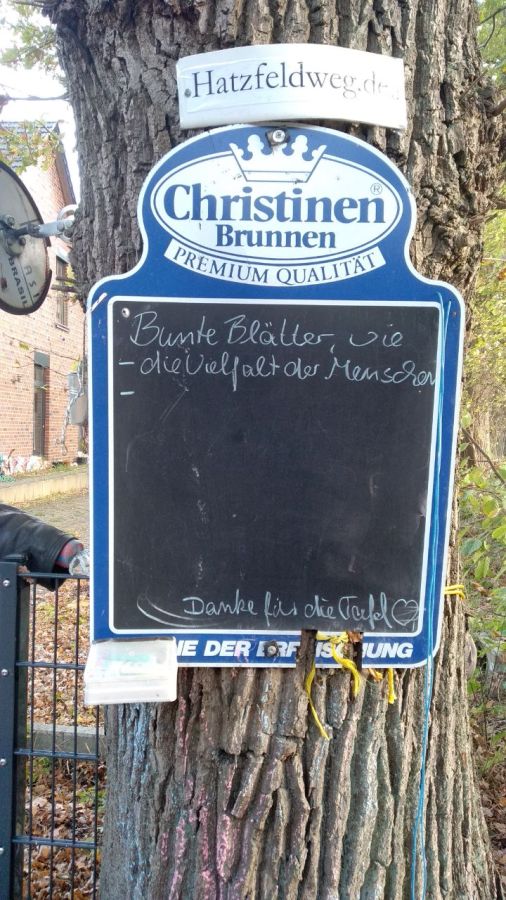 Hatzfeldweg.de
Christinen®
Brunnen
PREMIUM QUALITÄT
Bunte Blätter, wie
- die Vielfalt der Menschen
-
Danke für die Tafel ♡
DER ERFRISCHUNG
BRASIL